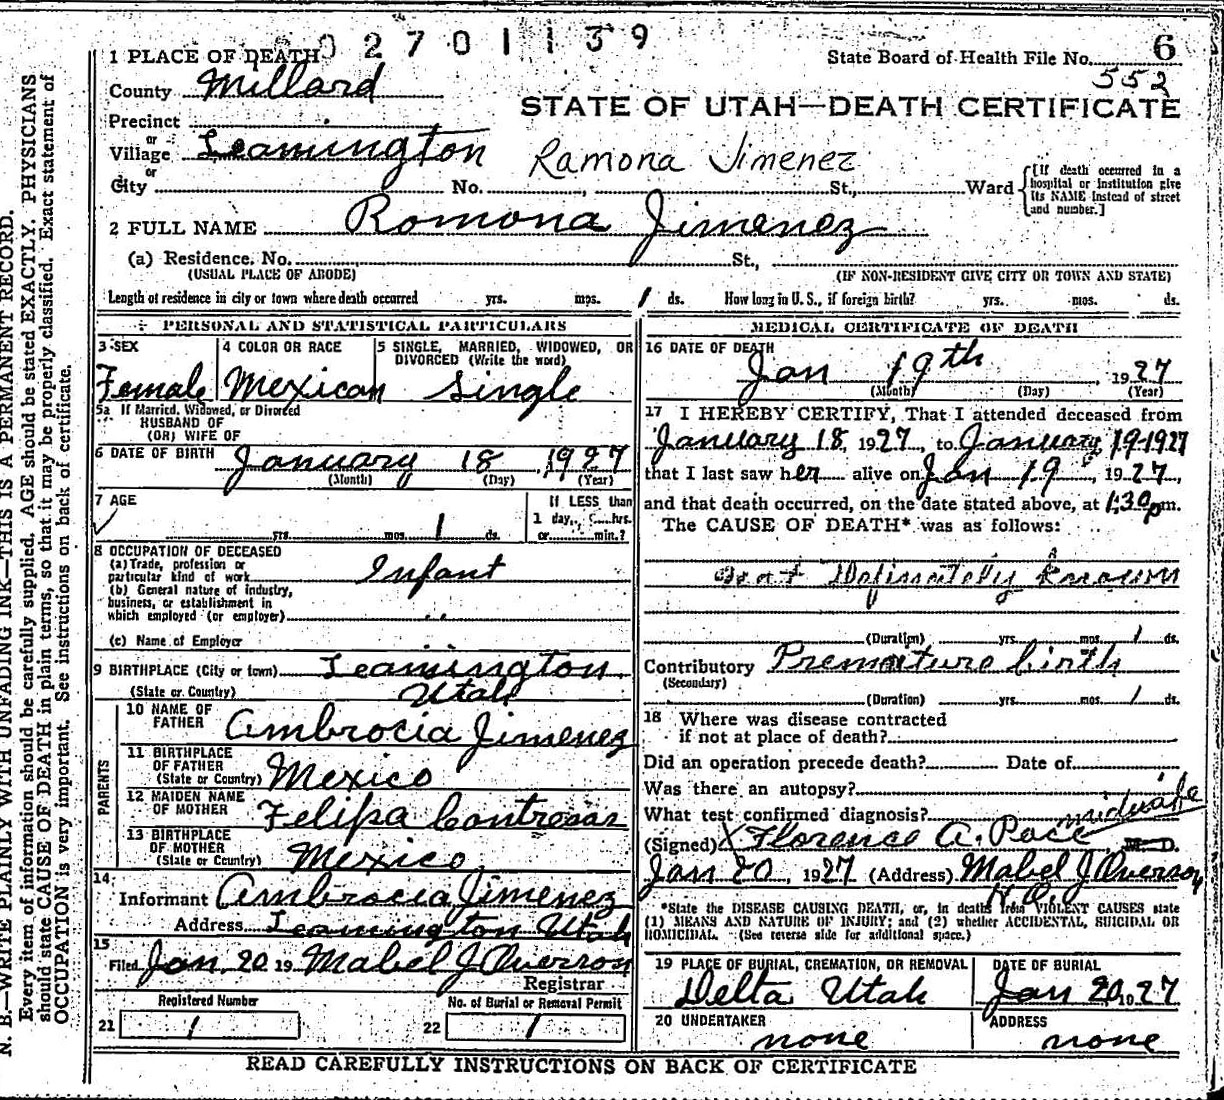 N. B.—WRITE PLAINLY WITH UNFADING INK—THIS IS A PERMANENT RECORD.
Every item of information should be carefully supplied. AGE should be stated EXACTLY. PHYSICIANS
should state CAUSE OF DEATH in plain terms, so that it may be properly classified. Exact statement of
OCCUPATION is very important. See instructions on back of certificate.
02701139
1 PLACE OF DEATH
State Board of Health File No. 6
552
County Millard
STATE OF UTAH—DEATH CERTIFICATE
Precinct
or
Village Leamington
Ramona Jimenez
or
City No. St., Ward
[If death occurred in a
hospital or institution give
its NAME instead of street
and number.]
2 FULL NAME Romona Jimenez
(a) Residence. No. St.,
(USUAL PLACE OF ABODE) (IF NON-RESIDENT GIVE CITY OR TOWN AND STATE)
Length of residence in city or town where death occurred yrs. mos. 1 ds. How long in U. S., if foreign birth? yrs. mos. ds.
PERSONAL AND STATISTICAL PARTICULARS
3 SEX
Female
4 COLOR OR RACE
Mexican
5 SINGLE, MARRIED, WIDOWED, OR
DIVORCED (Write the word)
Single
5a If Married, Widowed, or Divorced
HUSBAND OF
(OR) WIFE OF
6 DATE OF BIRTH January 18, 1927
(Month) (Day) (Year)
7 AGE
If LESS than
1 day, hrs.
yrs. mos. 1 ds. or min.?
8 OCCUPATION OF DECEASED
(a) Trade, profession or
particular kind of work Infant
(b) General nature of industry,
business, or establishment in
which employed (or employer)
(c) Name of Employer
9 BIRTHPLACE (City or town) Leamington
(State or Country) Utah
PARENTS
10 NAME OF
FATHER Ambrocia Jimenez
11 BIRTHPLACE
OF FATHER
(State or Country) Mexico
12 MAIDEN NAME
OF MOTHER Felipa Contreras
13 BIRTHPLACE
OF MOTHER
(State or Country) Mexico
14
Informant Ambrocia Jimenez
Address Leamington Utah
15
Filed Jan. 20 19 Mabel J Overson
Registrar
Registered Number
21 1
No. of Burial or Removal Permit
22 1
MEDICAL CERTIFICATE OF DEATH
16 DATE OF DEATH
Jan 19th, 1927
(Month) (Day) (Year)
17 I HEREBY CERTIFY, That I attended deceased from
January 18, 1927, to January 19-1927
that I last saw her alive on Jan 19, 1927,
and that death occurred, on the date stated above, at 1:30 pm.
The CAUSE OF DEATH* was as follows:
not Definately known
(Duration) yrs. mos. 1 ds.
Contributory Premature birth
(Secondary)
(Duration) yrs. mos. 1 ds.
18 Where was disease contracted
if not at place of death?
Did an operation precede death? Date of
Was there an autopsy?
What test confirmed diagnosis?
midwife
(Signed) X Florence A. Pace, M. D.
Jan 20, 1927 (Address) Mabel J Overson
*State the DISEASE CAUSING DEATH, or, in deaths from VIOLENT CAUSES state
(1) MEANS AND NATURE OF INJURY; and (2) whether ACCIDENTAL, SUICIDAL OR
HOMICIDAL. (See reverse side for additional space.)
19 PLACE OF BURIAL, CREMATION, OR REMOVAL
Delta Utah
DATE OF BURIAL
Jan 20, 1927
20 UNDERTAKER
none
ADDRESS
none
READ CAREFULLY INSTRUCTIONS ON BACK OF CERTIFICATE